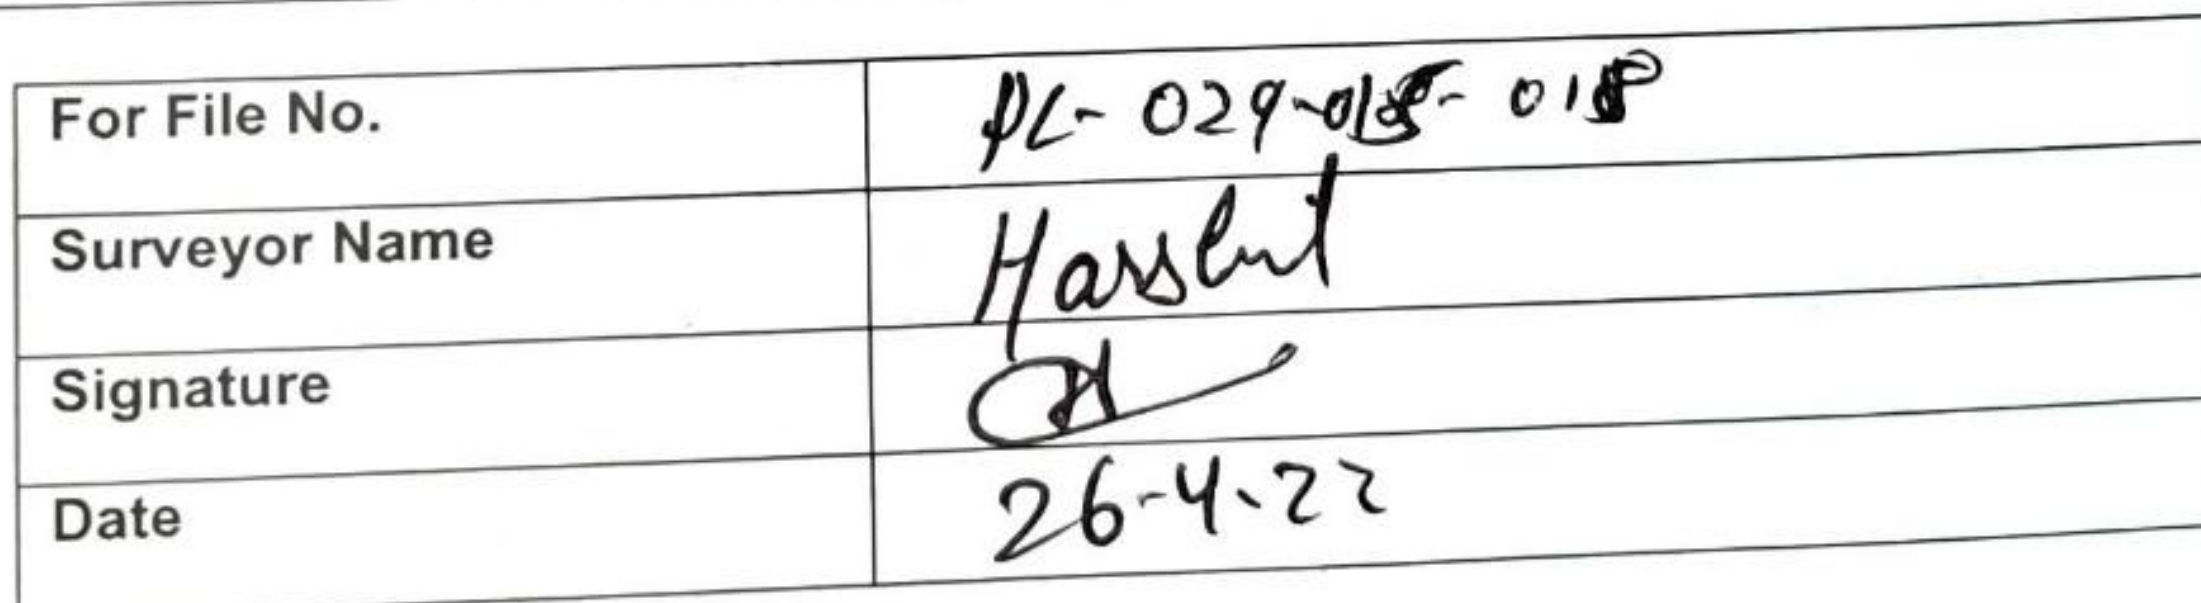 For File No. PL- 029-015- 018
Surveyor Name
Signature
Date 26-4-22